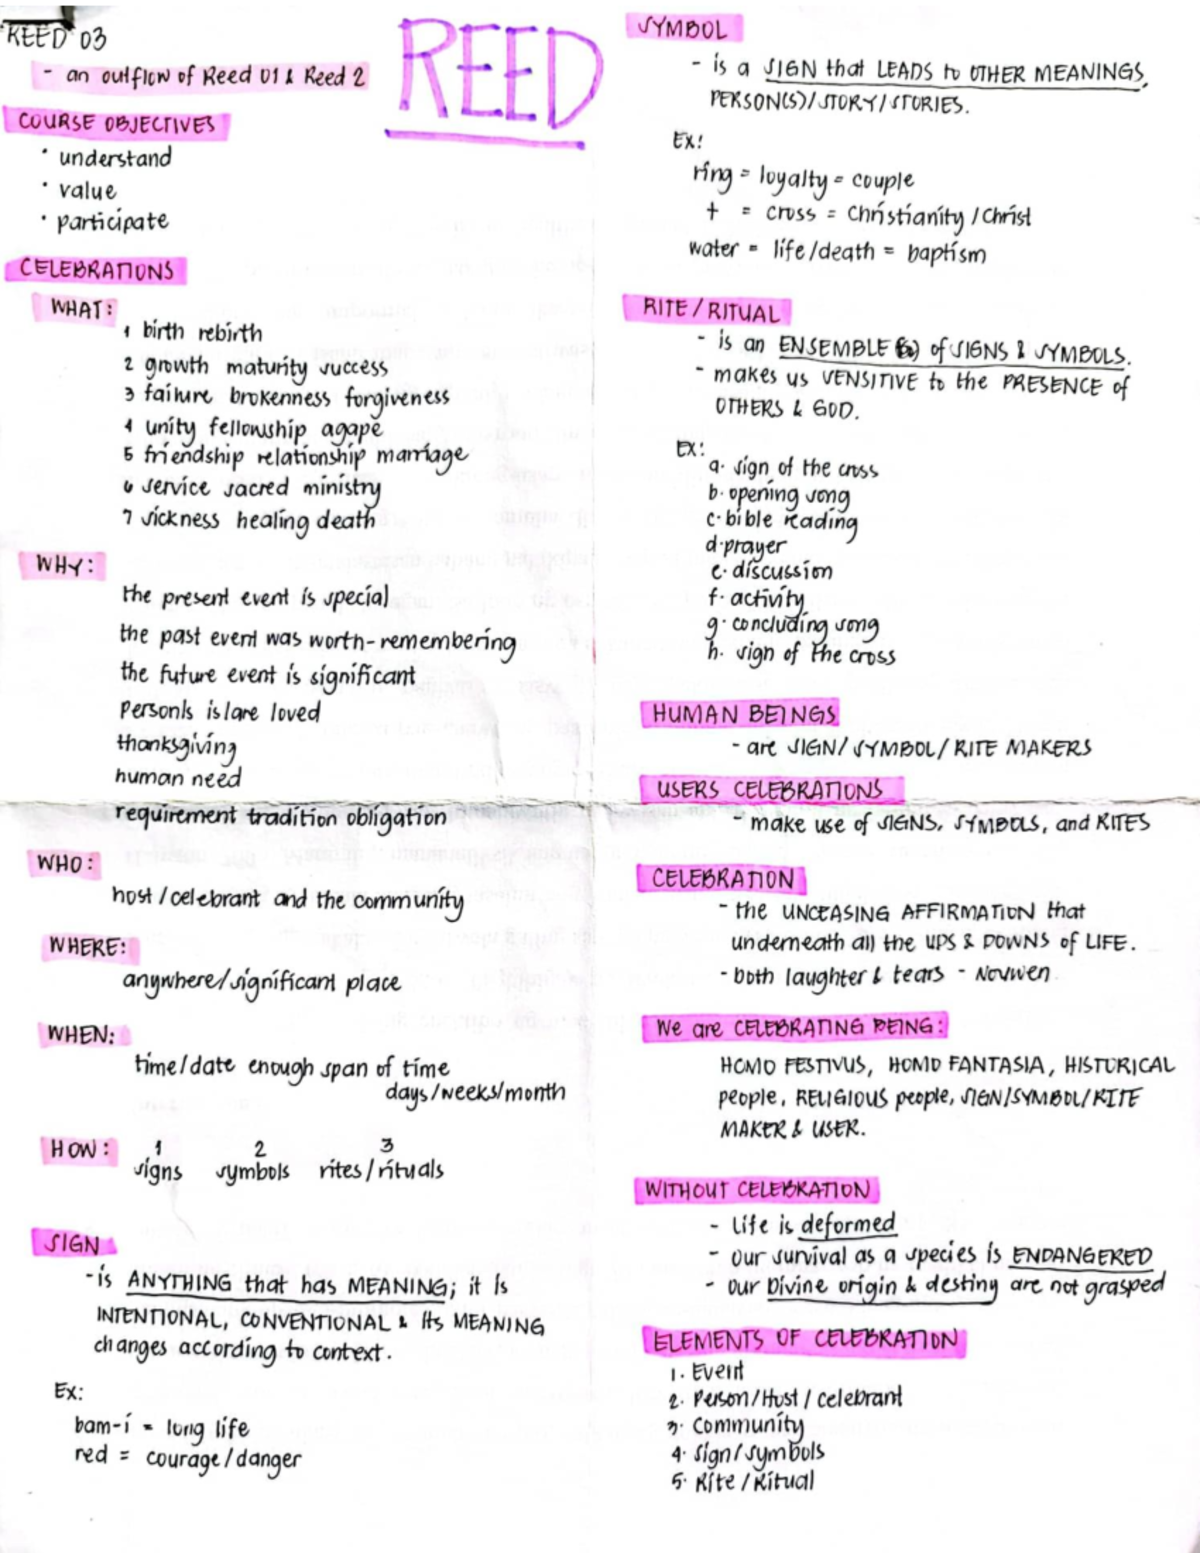 REED 03
- an outflow of Reed 01 & Reed 2
REED
COURSE OBJECTIVES
· understand
· value
· participate
CELEBRATIONS
WHAT:
1 birth rebirth
2 growth maturity success
3 failure brokenness forgiveness
4 unity fellowship agape
5 friendship relationship marriage
6 service sacred ministry
7 sickness healing death
WHY:
the present event is special
the past event was worth-remembering
the future event is significant
person/s is/are loved
thanksgiving
human need
requirement tradition obligation
WHO:
host/celebrant and the community
WHERE:
anywhere/significant place
WHEN:
time/date enough span of time
days/weeks/month
HOW:
1 2 3
signs symbols rites/rituals
SIGN
- is ANYTHING that has MEANING; it is
INTENTIONAL, CONVENTIONAL & its MEANING
changes according to context.
Ex:
bam-i = long life
red = courage/danger
SYMBOL
- is a SIGN that LEADS to OTHER MEANINGS,
PERSON(S)/STORY/STORIES.
Ex:
ring = loyalty = couple
† = cross = Christianity/Christ
water = life/death = baptism
RITE/RITUAL
- is an ENSEMBLE (s) of SIGNS & SYMBOLS.
- makes us SENSITIVE to the PRESENCE of
OTHERS & GOD.
Ex:
a. sign of the cross
b. opening song
c. bible reading
d. prayer
e. discussion
f. activity
g. concluding song
h. sign of the cross
HUMAN BEINGS
- are SIGN/SYMBOL/RITE MAKERS
USERS CELEBRATIONS
- make use of SIGNS, SYMBOLS, and RITES
CELEBRATION
- the UNCEASING AFFIRMATION that
underneath all the UPS & DOWNS of LIFE.
- both laughter & tears - Nouwen
We are CELEBRATING BEING:
HOMO FESTIVUS, HOMO FANTASIA, HISTORICAL
people, RELIGIOUS people, SIGN/SYMBOL/RITE
MAKER & USER.
WITHOUT CELEBRATION
- life is deformed
- our survival as a species is ENDANGERED
- our Divine origin & destiny are not grasped
ELEMENTS OF CELEBRATION
1. Event
2. Person/Host/celebrant
3. Community
4. Sign/symbols
5. Rite/Ritual